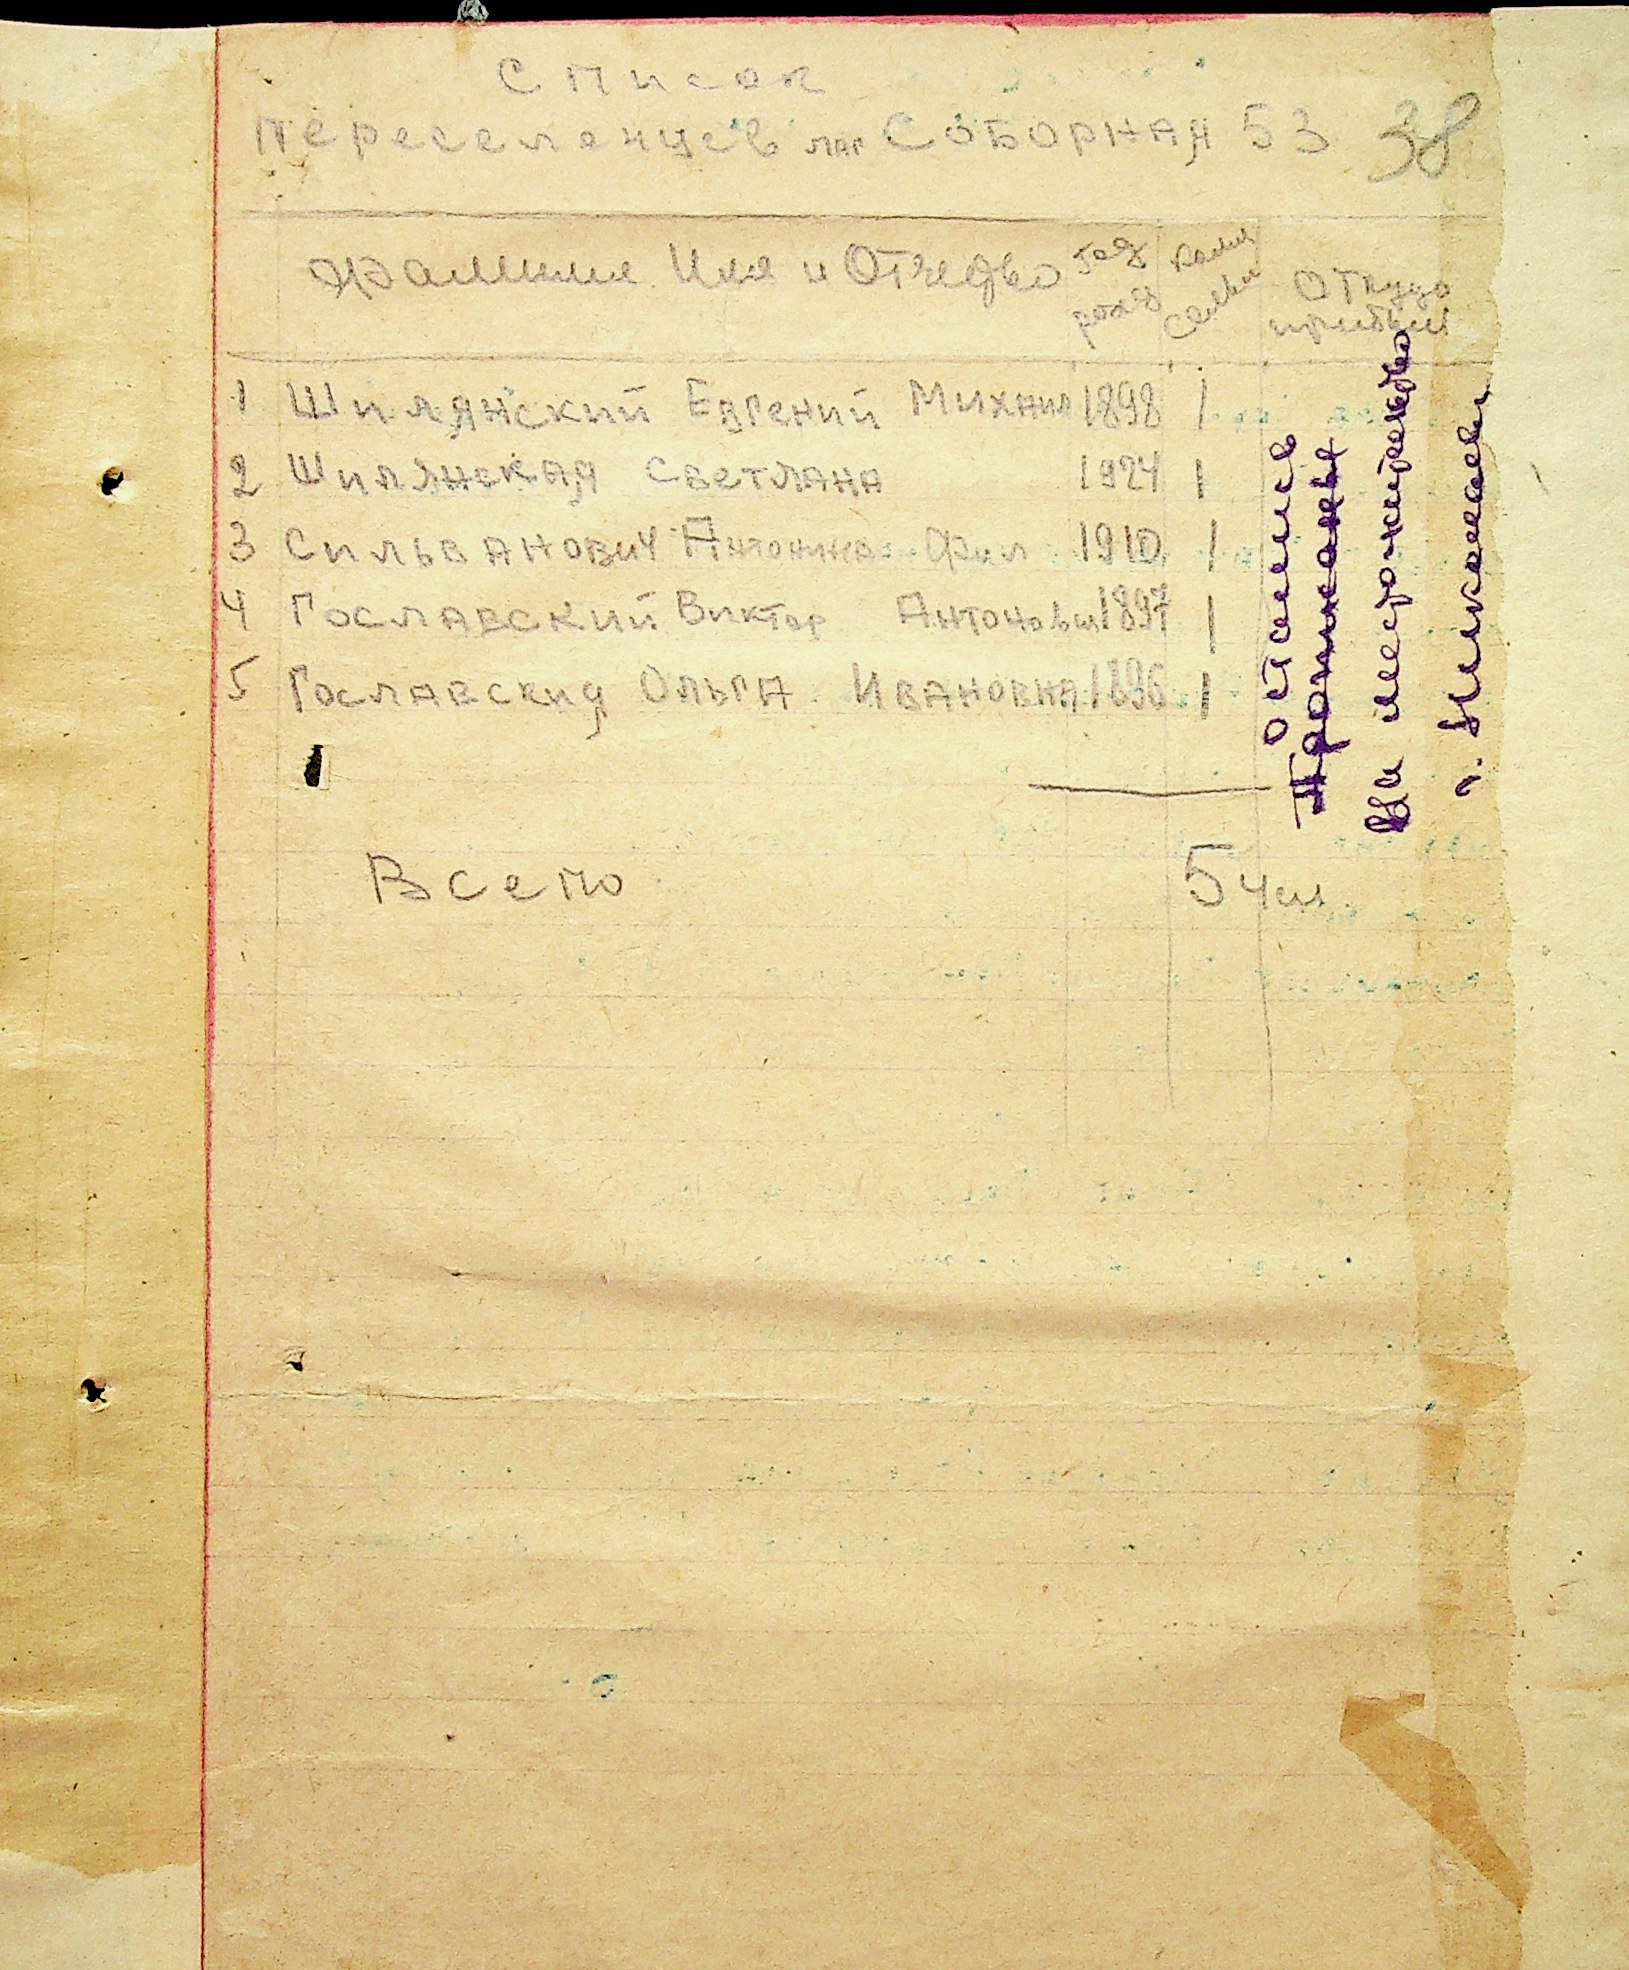 Список
переселенцев СОБОРНАЯ 53 38
Фамилия Имя и Отчество год рожд Колич семьи Откуда прибыл
1 Шилянский Евгений Михаил 1898 1
2 Шилянская Светлана 1924 1
3 Сильванович Антонина Фил 1910 1
4 Гославский Виктор Антонович 1897 1
5 Гославския Ольга Ивановна 1896 1
Всего 5 чел
остались
на местожительство
г. Николаев